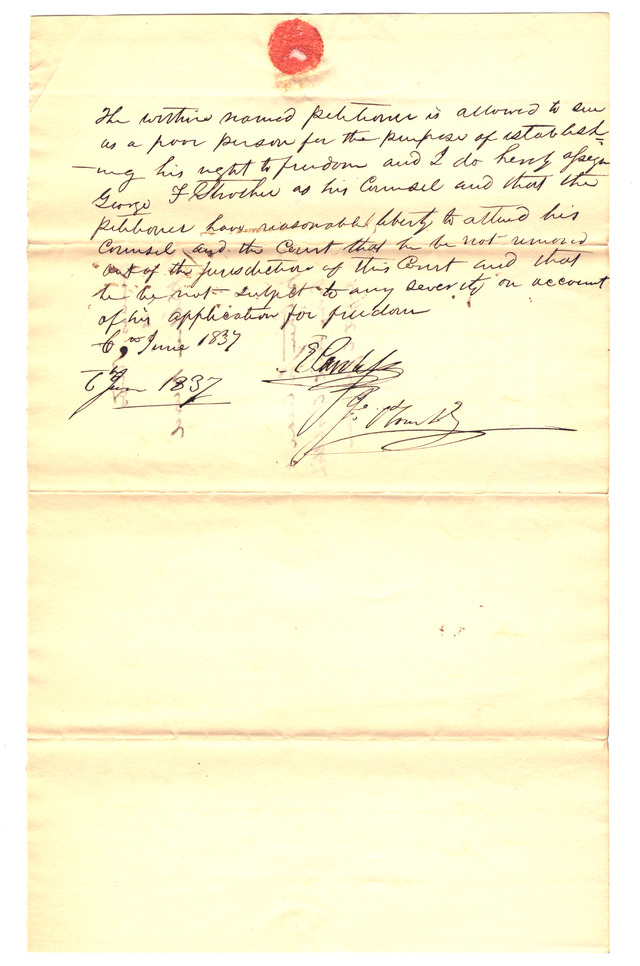 The within named petitioner is allowed to sue
as a poor person for the purpose of establish
-ing his right to freedom and I do hereby assign
George F Strother as his Counsel and that the
petitioner have reasonable liberty to attend his
Counsel and the Court that he be not removed
out of the jurisdiction of this Court and that
he be not subject to any severity on account
of his application for freedom
6 June 1837
6 June 1837